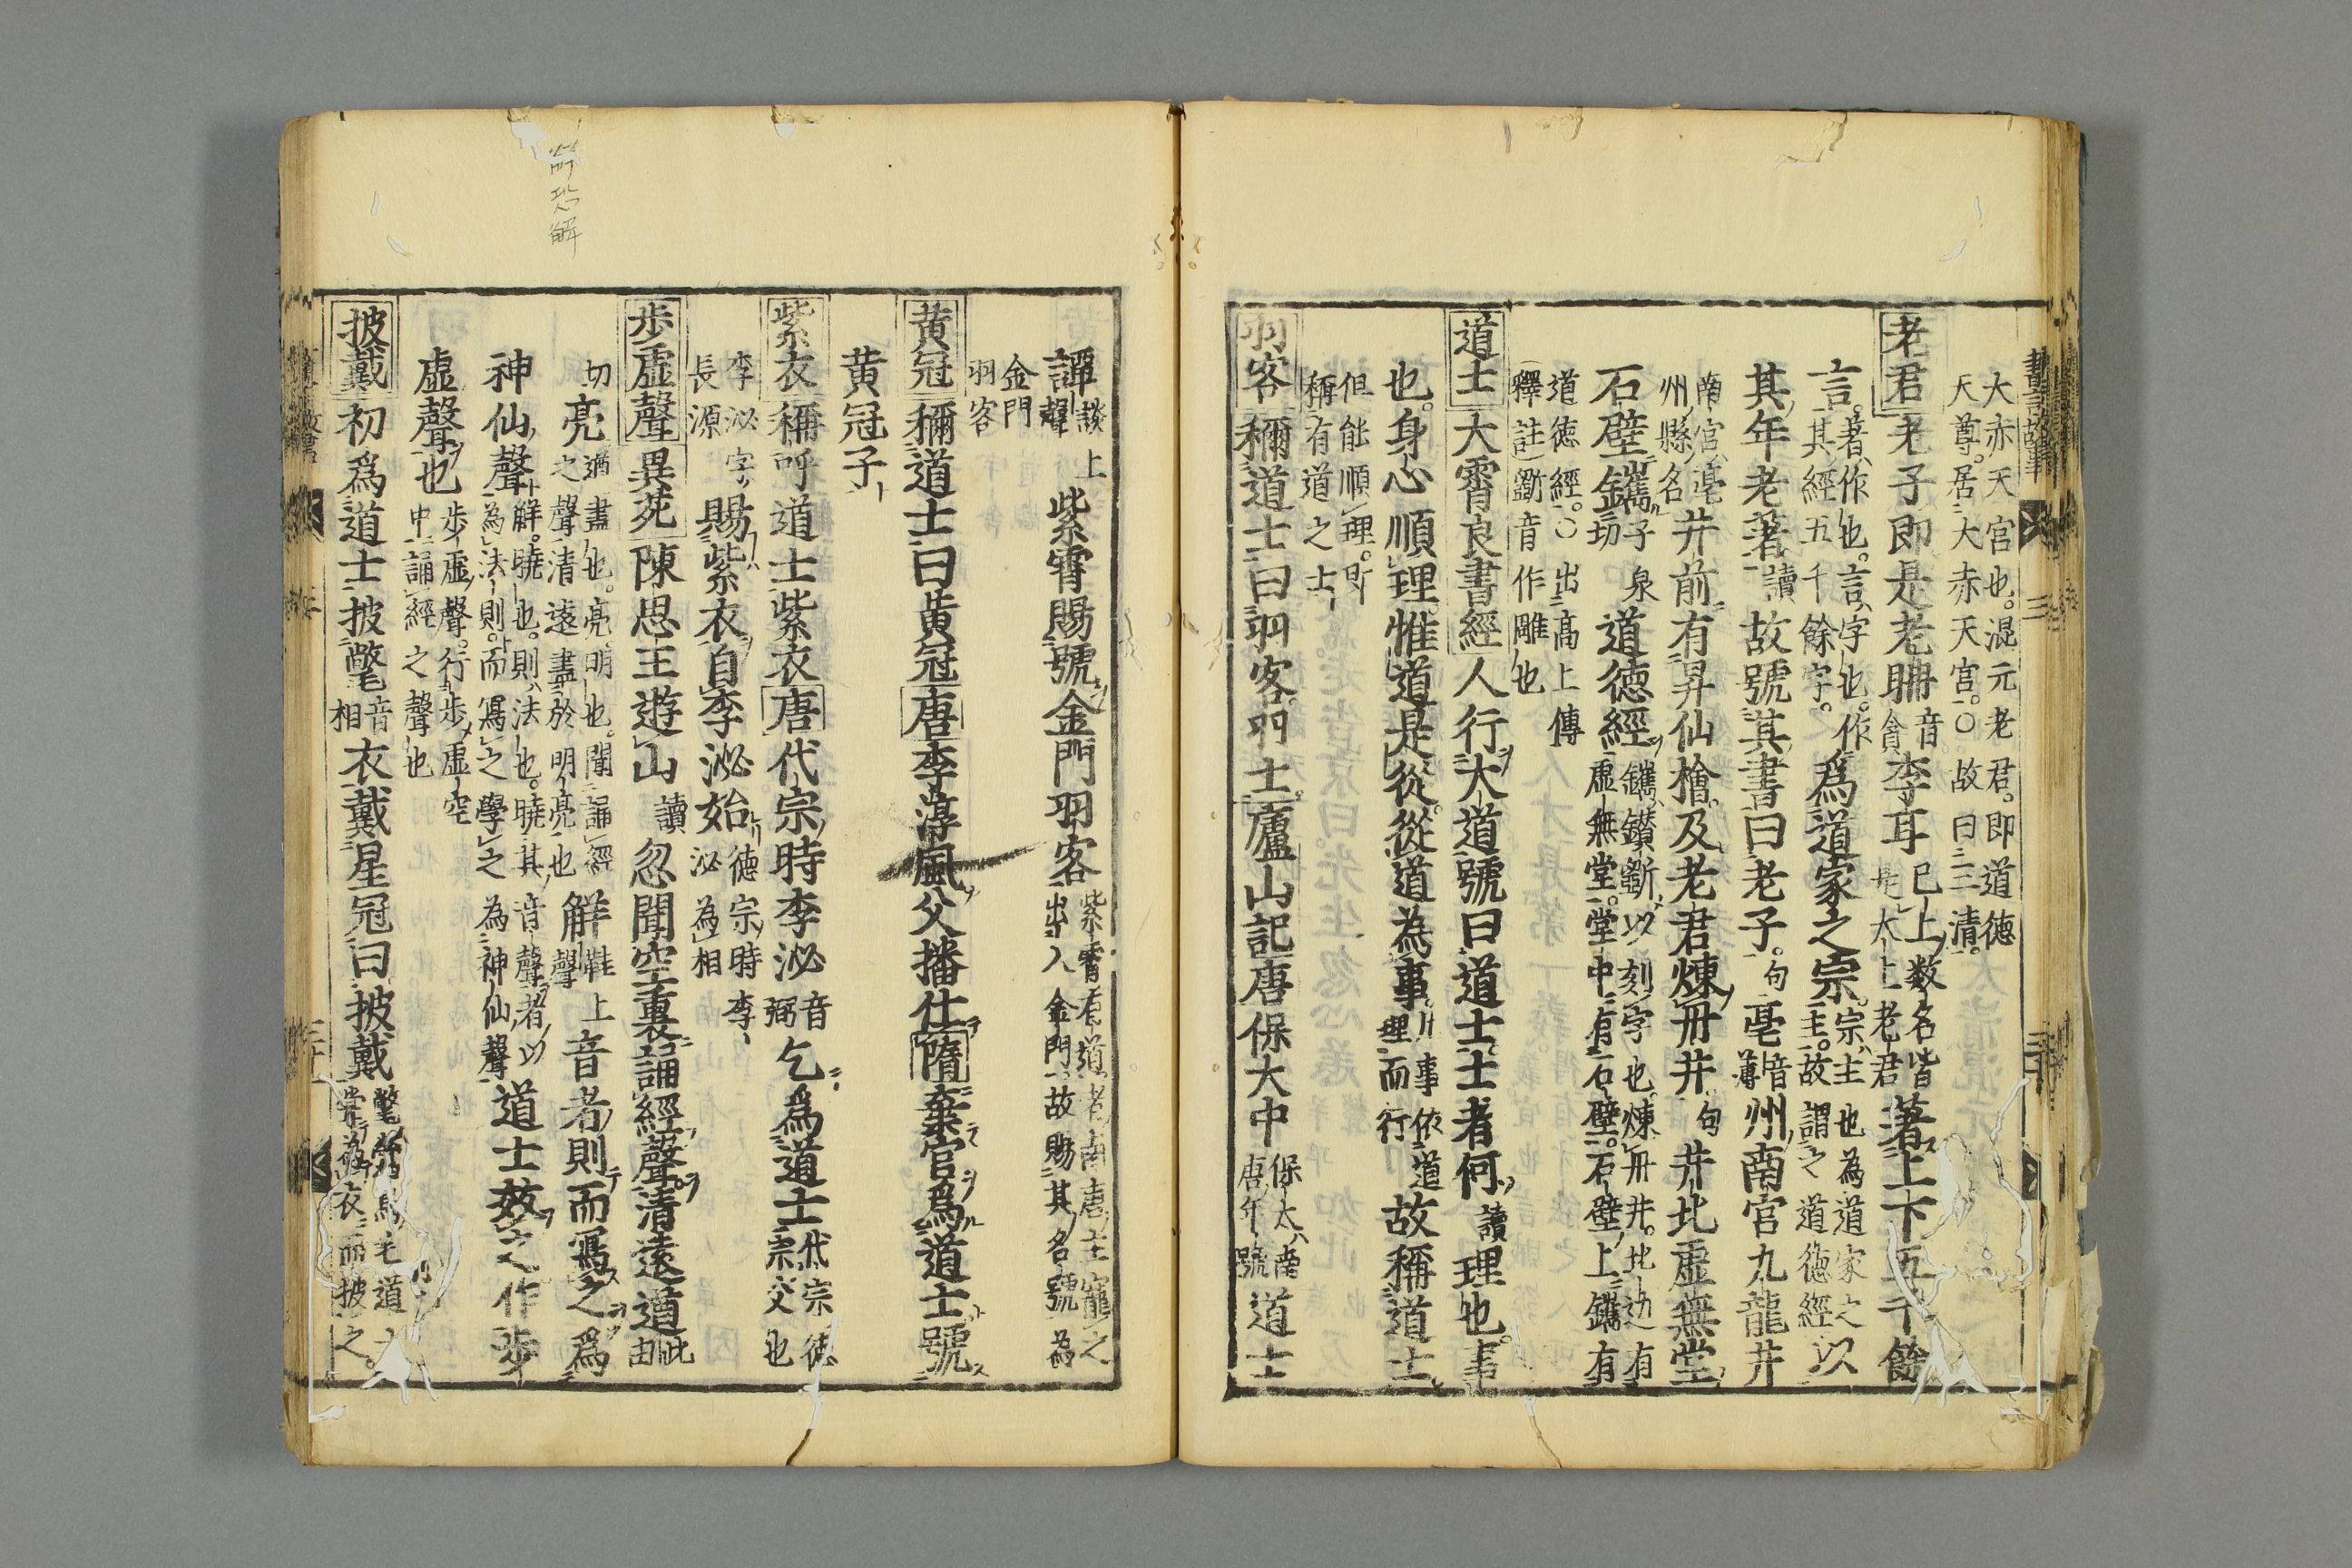 大赤天宮也。混元老君。即道德
天尊。居大赤天宮。○故曰三清。
老君 老子即是老聃 音貪 李耳 已上数名皆是太上老君 著上下五千餘
言。著、作也。言、字也。作其經五千餘字。 爲道家之宗。宗、主也為道家之主。故謂之道德經 以
其年老著 讀 故號其書曰老子。句 亳 音薄 州南宮九龍井
南宮、亳州縣名 井前有昇仙檜。及老君煉丹井 句 井北虛無堂
石壁鐫 子泉切 道德經 鐫、鑚斵以刻字也。煉丹井。北边有虛無堂。堂中有石壁。石壁上鐫有
道德經。○出高上傳
釋註斵音作雕也
道士 大霄良書經 人行大道號曰道士。士者何 讀 理也。事
也。身心順理。惟道是從。從道為事。事依道理而行 故稱道士
但能順理。即
稱有道之士
羽客 稱道士曰羽客。羽士。廬山記 唐保大中 保大、南唐年號 道士
譚 談聲 上 紫霄賜號金門羽客 紫霄有道者南唐主寵之出入金門故賜其名號為
金門
羽客
黃冠 稱道士曰黃冠 唐 李淳風父播仕 隋 棄官爲道士。號
黃冠子
紫衣 稱呼道士紫衣 唐 代宗時李泌 音弼 乞爲道士 代宗德宗父也
李泌字長源 賜紫衣自李泌始 德宗時李泌為相
步虛聲 異苑 陳思王遊山 讀 忽聞空裏誦經聲。清遠遒 此由
切 亮 遒盡也。亮明也。聞誦經之聲清遠盡於明亮也 解 鞋上聲 音者則而寫之爲
神仙聲 解。曉也。則法也。曉其音聲者以為法則。而寫之學之為神仙聲 道士效之作步
虛聲也 步虛聲。行步虛空中誦經之聲也
披戴 初爲道士披氅 音相 衣戴星冠曰披戴 氅鶖鳥毛道士常為衣而披之。